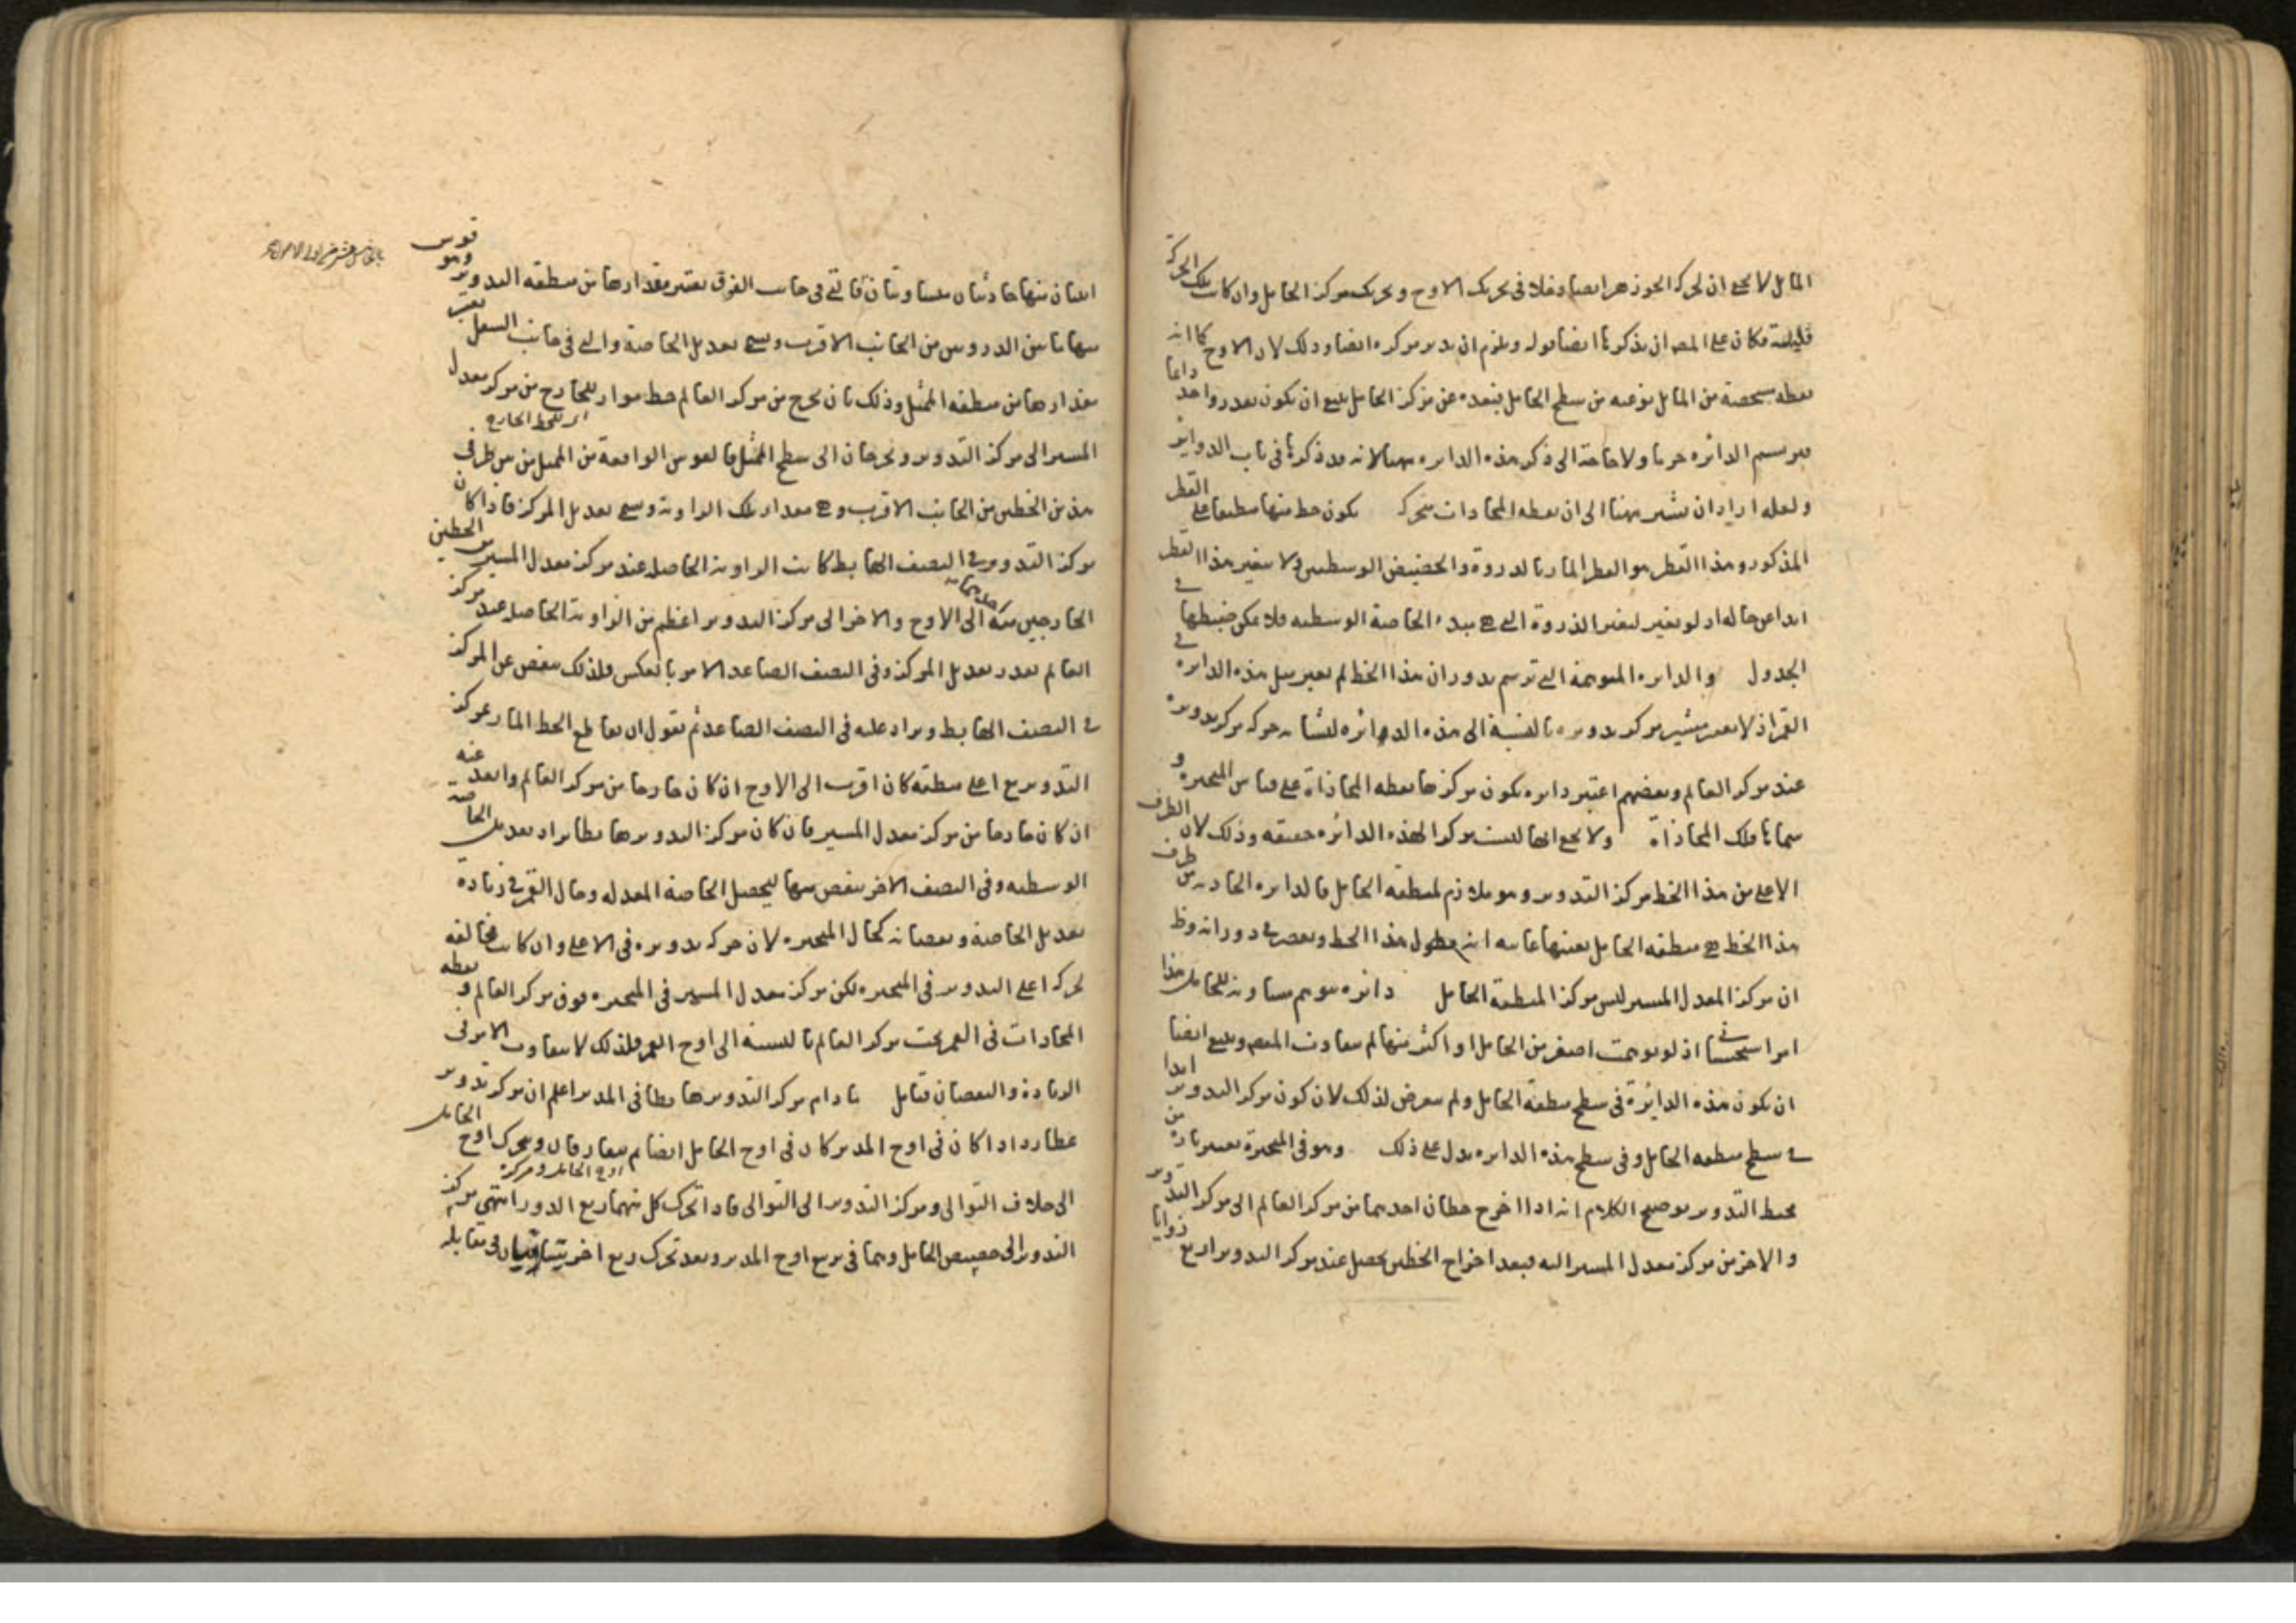 المايل لا يخفى ان لحركة الجوزهر ايضا دخلا في تحريك الاوج وتحريك مركز الحامل وان كانت تلك الحركة
قليلة فكان على المصـ ان يذكرها ايضا قوله ويلزم ان يدير مركزه ايضا وذلك لان الاوج كما انه
نقطه مشخصة من المايل نوعيه من سطح الحامل فبعده عن مركز الحامل ينبغي ان يكون بقدر واحد دايما
فيرسم الدائره جرما ولا حاجة الى ذكر هذه الدايره ههنا لانه قد ذكرها في باب الدواير
ولعله اراد ان يشير ههنا الى ان نقطه المحاذات متحركـ يكون خط منها منطبقا على القطر
المذكور وهذا القطر هو القطر المار بالذروة والحضيض الوسطيين ولا يتغير هذا القطر
ابدا عن حاله اذ لو تغير لتغير الذروة التي هي مبدء الخاصة الوسطيه فلا يمكن ضبطها في
الجدول والدايره المتوهمة التي ترسم بدوران هذا الخط لم يعتبر مثل هذه الدايره في
القمر اذ لا يعتبر مسير مركز تدويره بالنسبة الى هذه الدائره لتشابه حركه مركز تدويره
عند مركز العالم وبعضهم اعتبر دايره يكون مركزها نقطه المحاذاة على قياس المتحيره و
سماها فلك المحاذاة ولا يخفى انها ليست مركز الهذه الدائره حقيقه وذلك لان الطرف
الاعلى من هذا الخط مركز التدوير وهو ملازم لمنطقه الحامل فالدايره الحادثه من طرف
هذا الخط هي منطقه الحامل بعينها غايته انه يطول هذا الخط ويقصر في دورانه وظ
ان مركز المعدل المسير ليس مركز المنطقة الحامل دائره يتوهم مساويه للحامل هذا
امرا ستحسنا في اذ لو توهمت اصغر من الحامل او اكثر منها لم يتفاوت المقصـ وينبغي ايضا
ان يكون هذه الدائرة في سطح منطقة الحامل ولم يتعرض لذلك لان كون مركز التدوير ابدا
في سطح منطقه الحامل وفي سطح هذه الدايره يدل على ذلك وهو في المتحيرة بعينها من
محيط التدوير توضيح الكلام انه اذا اخرج خطان احدهما من مركز العالم الى مركز التدوير
والاخر من مركز معدل المسير اليه فبعد اخراج الخطين يحصل عند مركز التدوير اربع زوايا
اثنان منها حادتان متساويتان فالتي في جانب الفوق يعتبر مقدارها من منطقه التدوير وهو قوس
منها ما بين الذروتين من الجانب الاقرب ويسمى تعديل الخاصة والتي في جانب السفل يعتبر
مقدارها من منطقه الممثل وذلك بان يخرج من مركز العالم خط مواز للخارج من مركز معدل
المسير الى مركز التدوير ويخرجان الى سطح الممثل فالقوس الواقعة من الممثل من بين طرفي
اى للخط الخارج
هذين الخطين من الجانب الاقرب وهي مقدار تلك الزاويه وسمى تعديل المركز فاذا كان
مركز التدوير في النصف الهابط كانت الزاويه الحاصله عند مركز معدل المسير من الخطين
الخارجين منه احدهما الى الاوج والاخر الى مركز التدوير اعظم من الزاوية الحاصله عند مركز
العالم بقدر تعديل المركز وفي النصف الصاعد الامر بالعكس فلذلك ينقص عن المركز
في النصف الهابط ويزاد عليه في النصف الصاعد ثم نقول ان تقاطع الخط المار بمركز
التدوير مع اعلى منطقته كان اقرب الى الاوج ان كان خارجا من مركز العالم وابعد عنه
ان كان خارجا من مركز معدل المسير فان كان مركز التدوير هابطا يزاد تعديل الخاصة
الوسطيه وفي النصف الاخر ينقص منها ليحصل الخاصة المعدله وحال القمر في زيادة
تعديل الخاصة ونقصانه كحال المتحيره لان حركه تدويره في الاعلى وان كانت مخالفه
لحركه اعلى التدوير في المتحيره لكن مركز معدل المسير في المتحيره فوق مركز العالم و نقطه
المحاذات في القمر تحت مركز العالم بالنسبة الى اوج القمر فلذلك لا يتفاوت الامر في
الزيادة والنقصان فتامل ما دام مركز التدوير هابطا في المدير اعلم ان مركز تدوير
عطارد اذا كان في اوج المدير كان في اوج الحامل ايضا ثم يتفارقان ويتحرك اوج الحامل
الى خلاف التوالي ومركز التدوير الى التوالي فاذا تحرك كل منهما ربع الدور انتهى مركز
اوج الحامل ومركزه
التدوير الى حضيض الحامل وهما في تربيع اوج المدير وبعد تحرك ربع اخر يتلاقيان في مقابله